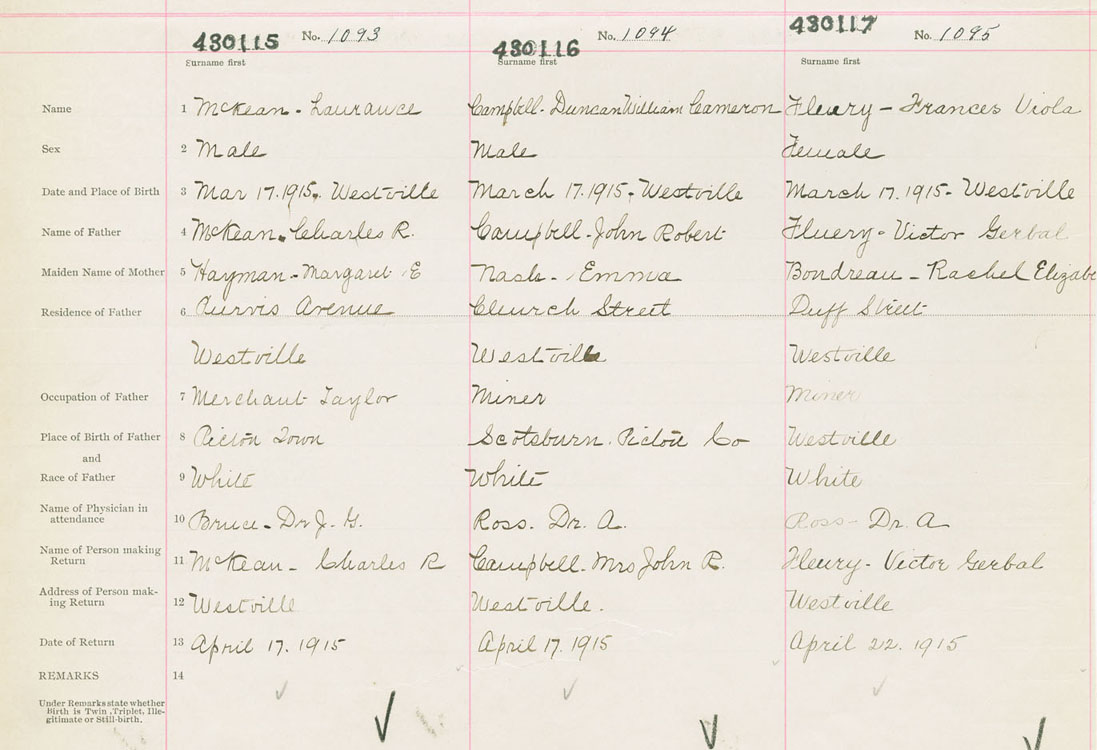 430115 No. 1093 430116 No. 1094 430117 No. 1095
Surname first Surname first Surname first
Name 1 McKean - Laurance Campbell - Duncan William Cameron Fleury - Frances Viola
Sex 2 Male Male Female
Date and Place of Birth 3 Mar 17. 1915. Westville March 17. 1915. Westville March 17. 1915 - Westville
Name of Father 4 McKean. Charles R. Campbell - John Robert Fluery - Victor Gerbal
Maiden Name of Mother 5 Hayman - Margaret E Nash - Emma Bondreau - Rachel Elizabe
Residence of Father 6 Purvis Avenue Church Street Duff Street
Westville Westville Westville
Occupation of Father 7 Merchant Taylor Miner Miner
Place of Birth of Father 8 Pictou Town Scotsburn. Pictou Co Westville
and
Race of Father 9 White White White
Name of Physician in
attendance 10 Bruce - Dr J. G. Ross. Dr. A. Ross - Dr. A
Name of Person making
Return 11 McKean - Charles R Campbell - Mrs John R. Fleury - Victor Gerbal
Address of Person mak-
ing Return 12 Westville Westville. Westville
Date of Return 13 April 17. 1915 April 17. 1915 April 22. 1915
REMARKS 14
Under Remarks state whether
Birth is Twin, Triplet, Ille-
gitimate or Still-birth.